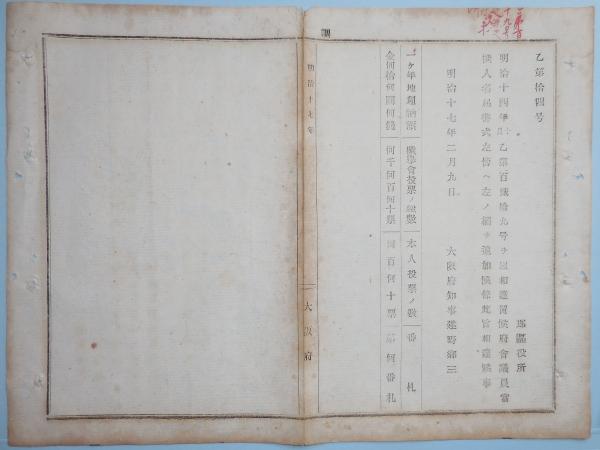 乙第拾四号
郡區役所
明治十四年 乙第百 拾九号ヲ以相達置候府會議員當
撰人名届書式左傍ヘ左ノ欄ヲ追加候條此旨相達候事
明治十七年二月九日
大阪府知事建野郷三
一ケ年地租納額 撰擧會投票ノ總數 本人投票ノ數 番札
金何拾何圓何錢 何千何百何十票 何百何十票 第何番札
明治十七年
大阪府